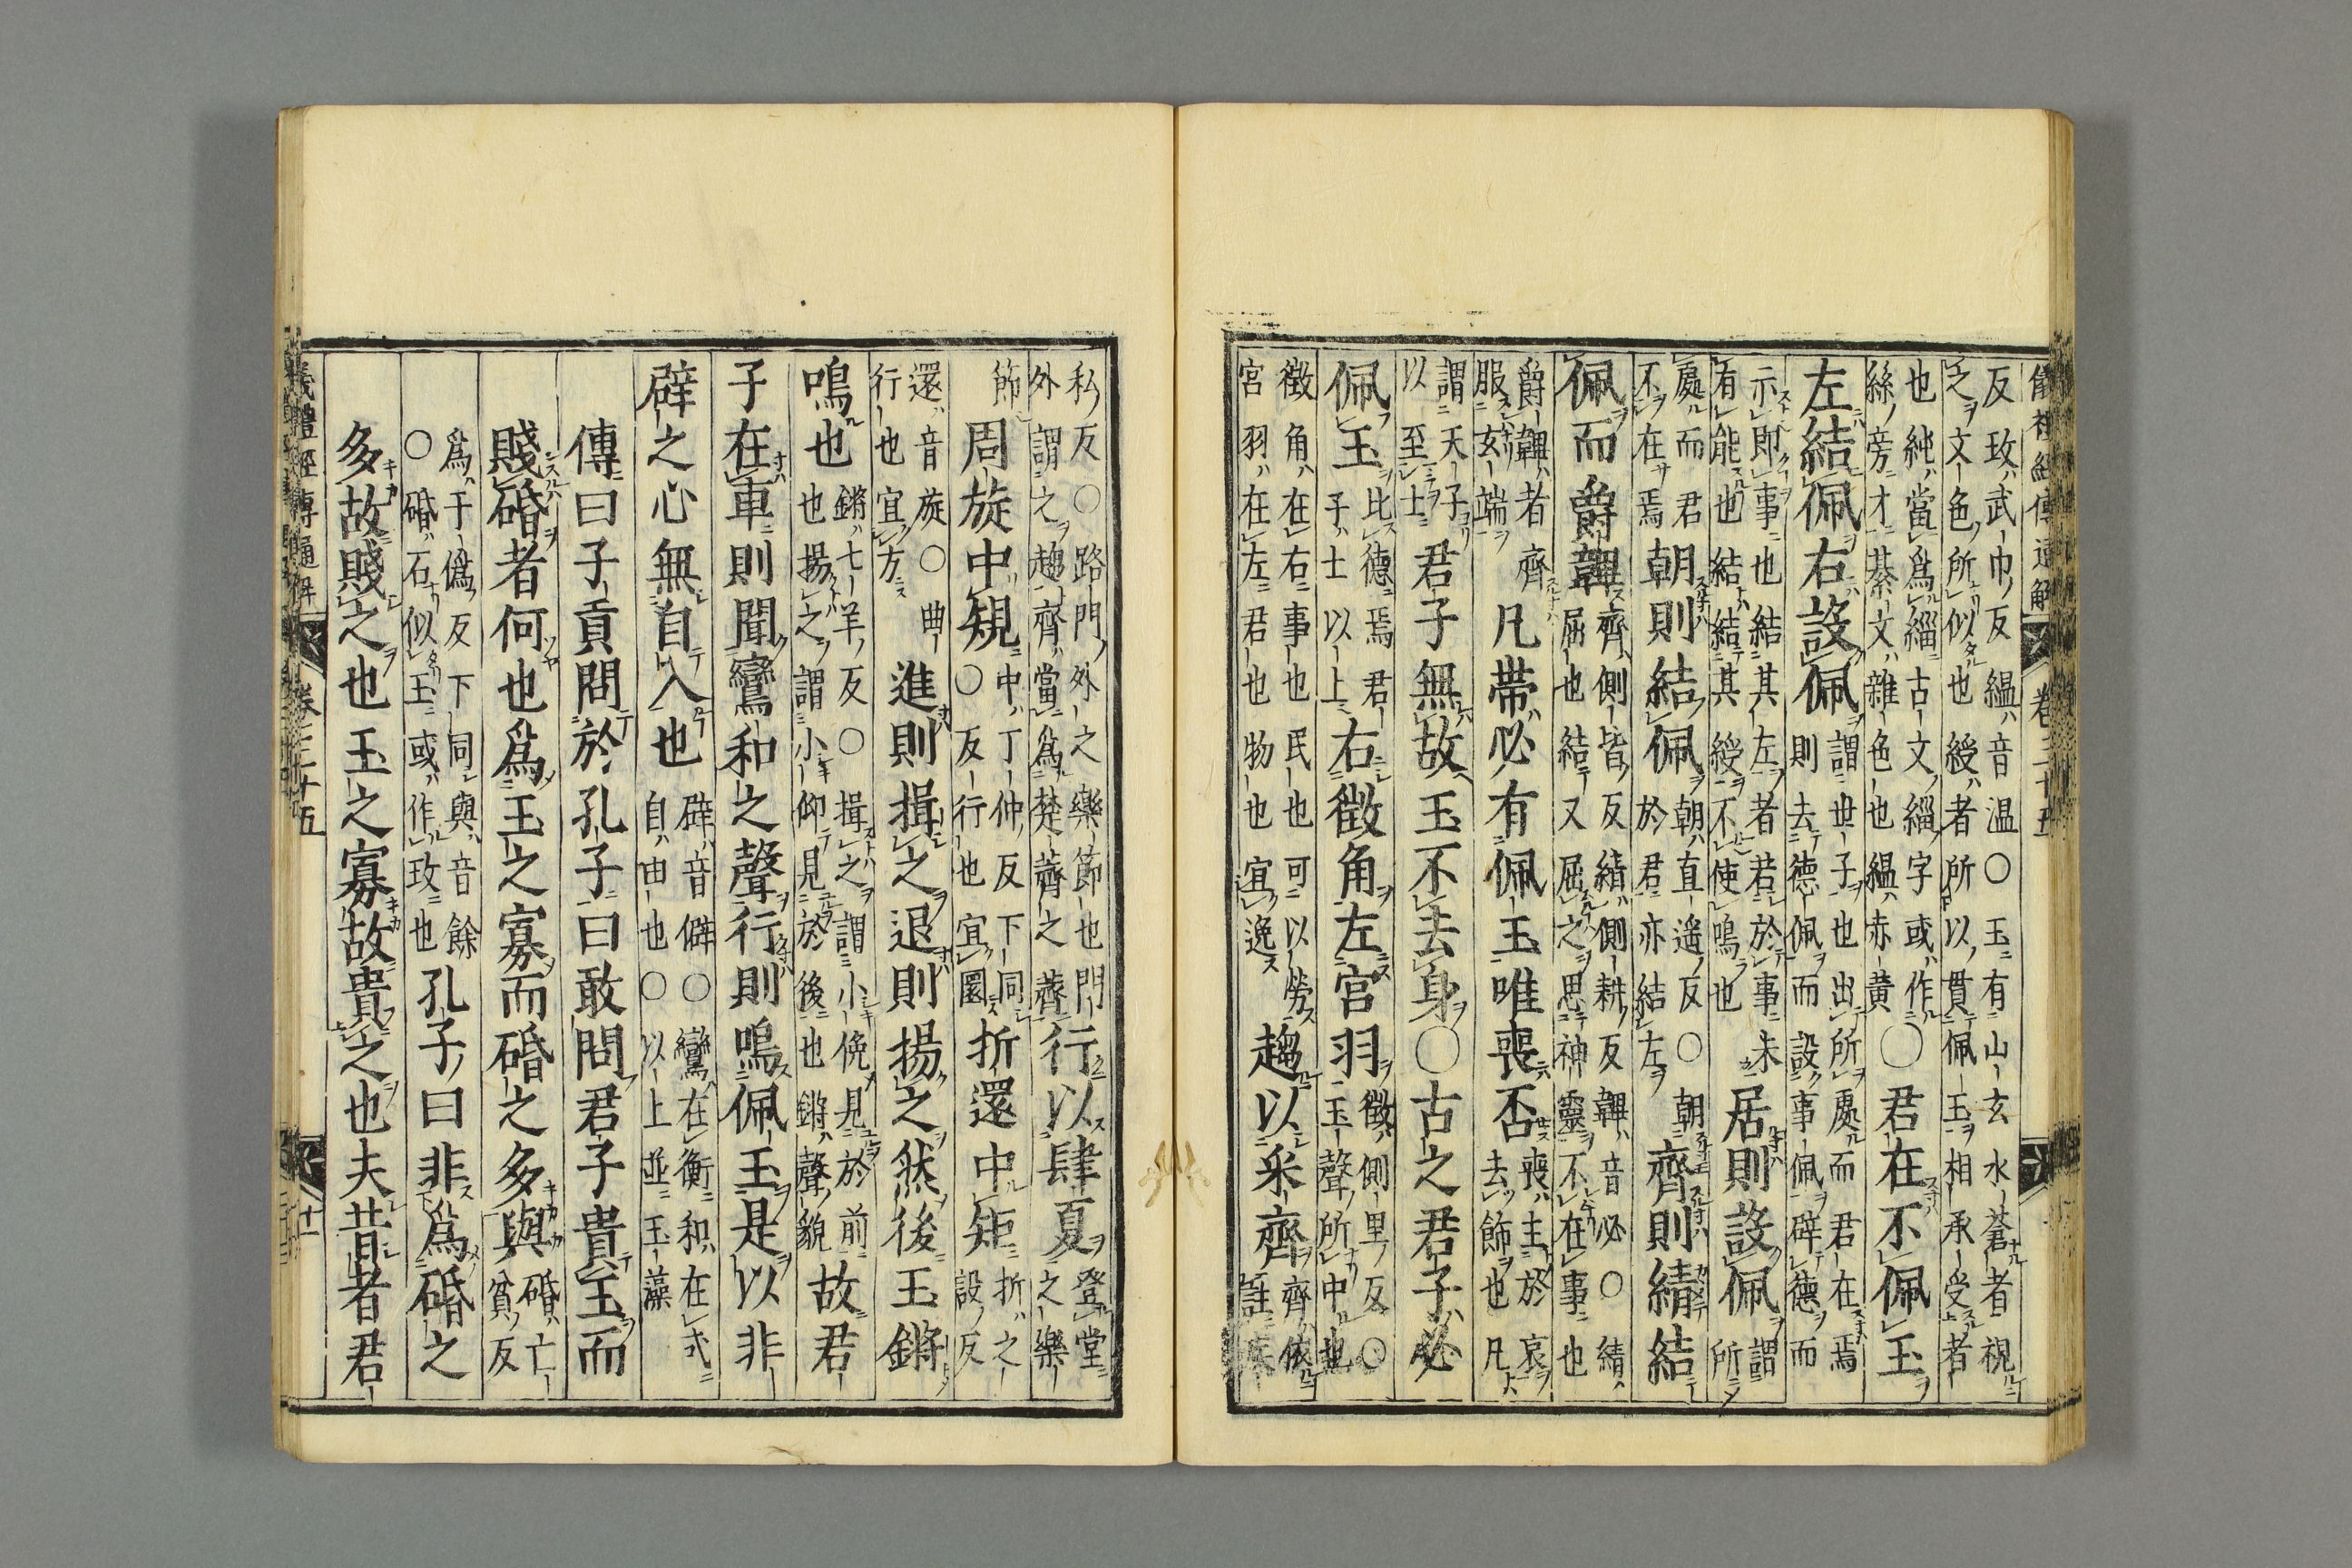 儀禮經傳通解 卷二十五
反玫武巾反緼音温〇玉有山玄水蒼者視
之文色所似也綬者所以貫佩玉相承受者
也純當爲緇古文緇字或作
絲旁才綦文雜色也緼赤黃〇君在不佩玉
左結佩右設佩謂世子也出所處而君在焉
則去德佩而設事佩辟德而
示即事也結其左者若於事未
有能也結結其綬不使鳴也居則設佩謂
所
處而君
不在焉朝則結佩朝直遥反〇朝
於君亦結左齊則綪結
佩而爵韠齊側皆反綪側耕反韠音必〇綪
屈也結又屈之思神靈不在事也
爵韠者齊
服玄端凡帶必有佩玉唯喪否喪主於哀
去飾也凡
謂天子
以至士君子無故玉不去身〇古之君子必
佩玉比德焉君
子士以上右徵角左宮羽徵側里反〇
玉聲所中也
徵角在右事也民也可以勞
宮羽在左君也物也宜逸趨以采齊齊依
註
私反〇路門外之樂節也門
外謂之趨齊當爲楚薺之薺行以肆夏登堂
之樂
節周旋中規中丁仲反下同
〇反行也宜圜折還中矩折之
設反
還音旋〇曲
行也宜方進則揖之退則揚之然後玉鏘
鳴也鏘七羊反〇揖之謂小俛見於前
也揚之謂小仰見於後也鏘聲貌故君
子在車則聞鸞和之聲行則鳴佩玉是以非
辟之心無自入也辟音僻〇鸞在衡和在式
自由也〇以上並玉藻
傳曰子貢問於孔子曰敢問君子貴玉而
賤碈者何也爲玉之寡而碈之多與碈亡
貧反
爲于僞反下同與音餘
〇碈石似玉或作玫也孔子曰非爲碈之
多故賤之也玉之寡故貴之也夫昔者君
儀禮經傳通解 卷二十五